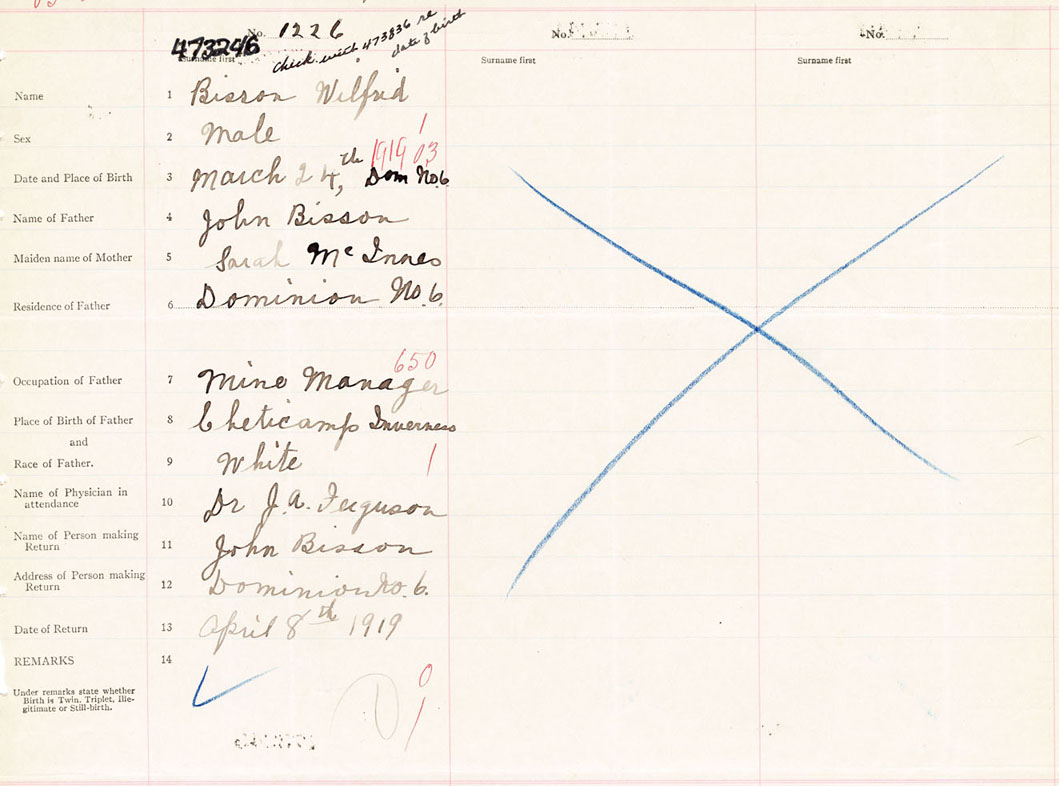 No. 1226
473246
check with 473836 re
date of birth
Surname first
No.
Surname first
No.
Surname first
Name 1 Bisson Wilfrid
Sex 2 Male 1
1919 03
Date and Place of Birth 3 March 24th, Dom No. 6
Name of Father 4 John Bisson
Maiden name of Mother 5 Sarah McInnes
Residence of Father 6 Dominion No. 6.
650
Occupation of Father 7 Mine Manager
Place of Birth of Father 8 Cheticamp Inverness
and
Race of Father. 9 White 1
Name of Physician in
attendance 10 Dr J. A. Ferguson
Name of Person making
Return 11 John Bisson
Address of Person making
Return 12 Dominion No. 6.
Date of Return 13 April 8th 1919
REMARKS 14
0
Under remarks state whether
Birth is Twin, Triplet, Ille-
gitimate or Still-birth.
1